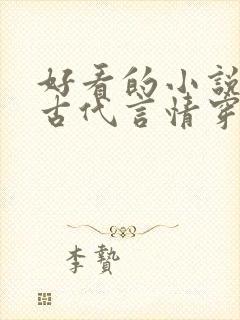 好看的小說
古代言情穿
李贄